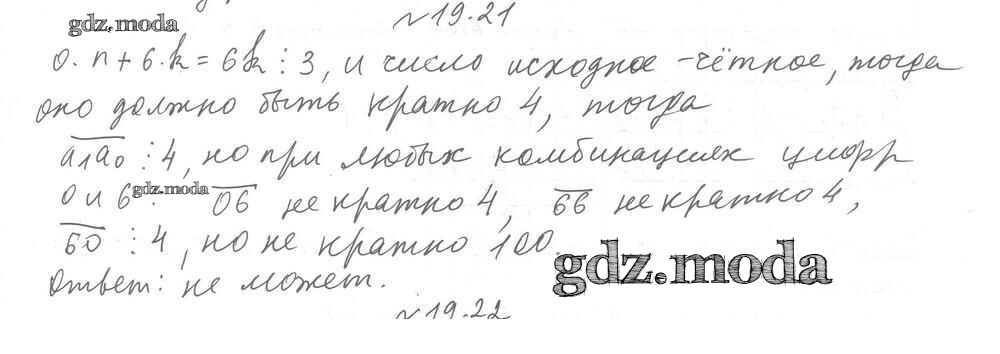 gdz.moda
№19.21
0·n+6·k=6k⋮3, и число исходное - чётное, тогда
оно должно быть кратно 4, тогда
a₁a₀ ⋮ 4, но при любых комбинациях цифр
0 и 6: gdz.moda 06 не кратно 4, 66 не кратно 4,
60 ⋮ 4, но не кратно 100.
gdz.moda
Ответ: не может.
№19.22